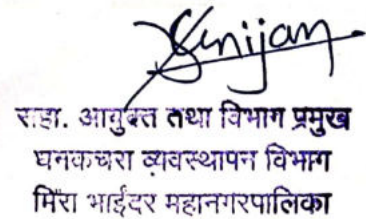 सहा. आयुक्त तथा विभाग प्रमुख
घनकचरा व्यवस्थापन विभाग
मिरा भाईंदर महानगरपालिका